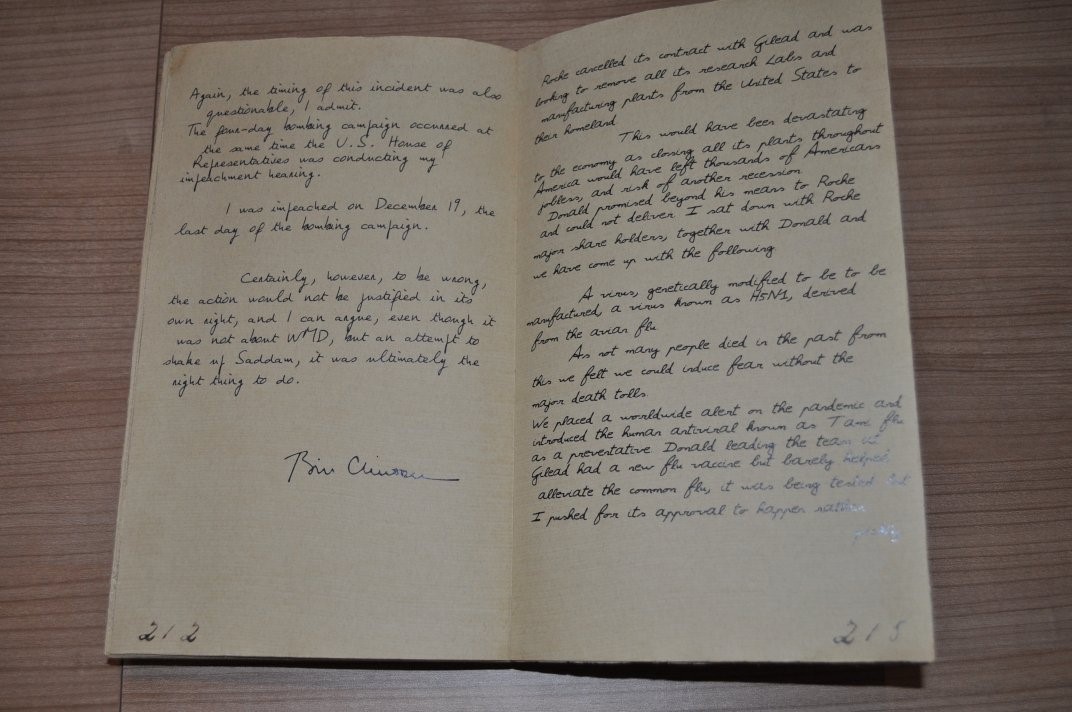 Again, the timing of this incident was also
questionable, I admit.
The four-day bombing campaign occurred at
the same time the U.S. House of
Representatives was conducting my
impeachment hearing.
I was impeached on December 19, the
last day of the bombing campaign.
Certainly, however, to be wrong,
the action would not be justified in its
own right, and I can argue, even though it
was not about WMD, but an attempt to
shake up Saddam, it was ultimately the
right thing to do.
Bill Clinton
212
Roche cancelled its contract with Gilead and was
looking to remove all its research Labs and
manufacturing plants from the United States to
their homeland
This would have been devastating
to the economy as closing all its plants throughout
America would have left thousands of Americans
jobless, and risk of another recession
Donald promised beyond his means to Roche
and could not deliver I sat down with Roche
major share holders, together with Donald and
we have come up with the following
A virus, genetically modified to be to be
manufactured, a virus known as H5N1, derived
from the avian flu
As not many people died in the past from
this we felt we could induce fear without the
major death tolls
We placed a worldwide alert on the pandemic and
introduced the human antiviral known as Tami flu
as a preventative Donald leading the team at
Gilead had a new flu vaccine but barely helped
alleviate the common flu, it was being tested but
I pushed for its approval to happen rather
215